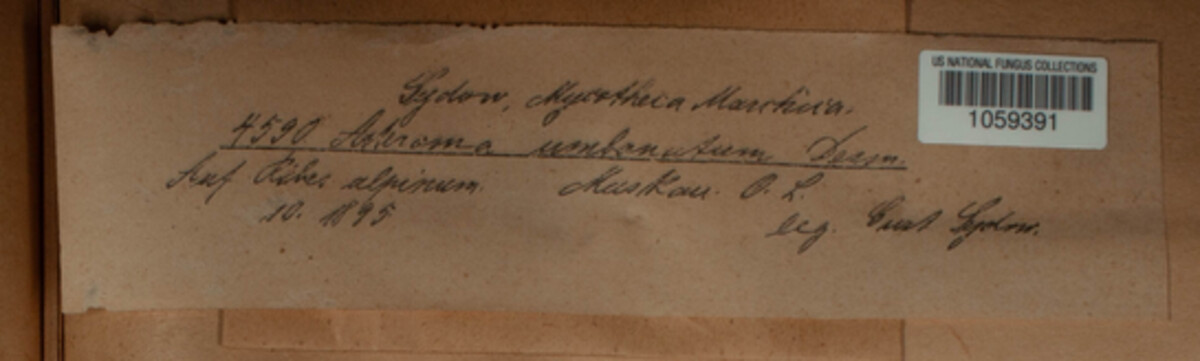 Sydow, Mycotheca Marchica.
4590 Asteroma umbonatum Desm.
Auf Ribes alpinum. Muskau. O. L.
10. 1895 leg. Curt Sydow.
US NATIONAL FUNGUS COLLECTIONS
1059391